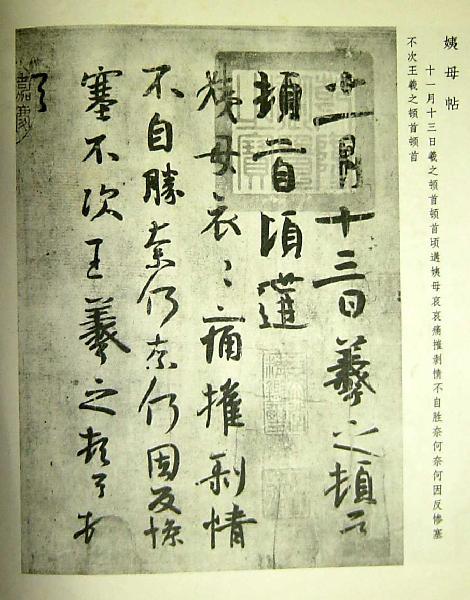 姨母帖
十一月十三日羲之顿首顿首顷遘姨母哀哀痛摧剥情不自胜奈何奈何因反惨塞
不次王羲之顿首顿首
十一月十三日羲之頓首
頓首頃遘
姨母哀〻痛摧剝情
不自勝奈何奈何因反慘
塞不次王羲之頓首頓
首